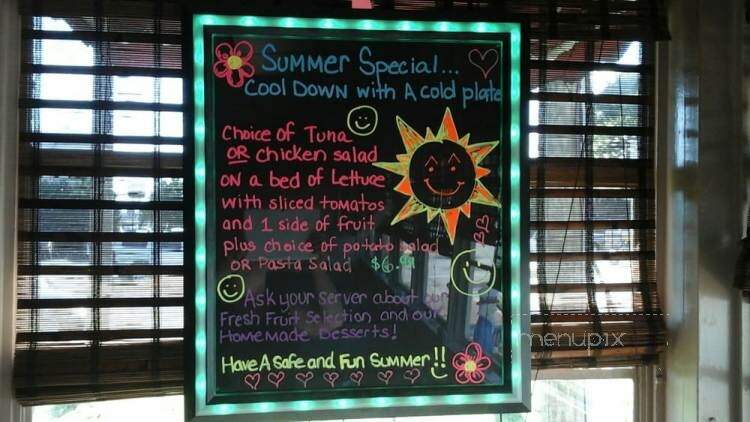 Summer Special...
Cool Down with A cold plate
Choice of Tuna
OR chicken salad
on a bed of Lettuce
with sliced tomatos
and 1 side of fruit
plus choice of potato salad
OR Pasta Salad $6.99
Ask your server about our
Fresh Fruit Selection and our
Homemade Desserts!
Have A Safe and Fun Summer!!
menupix